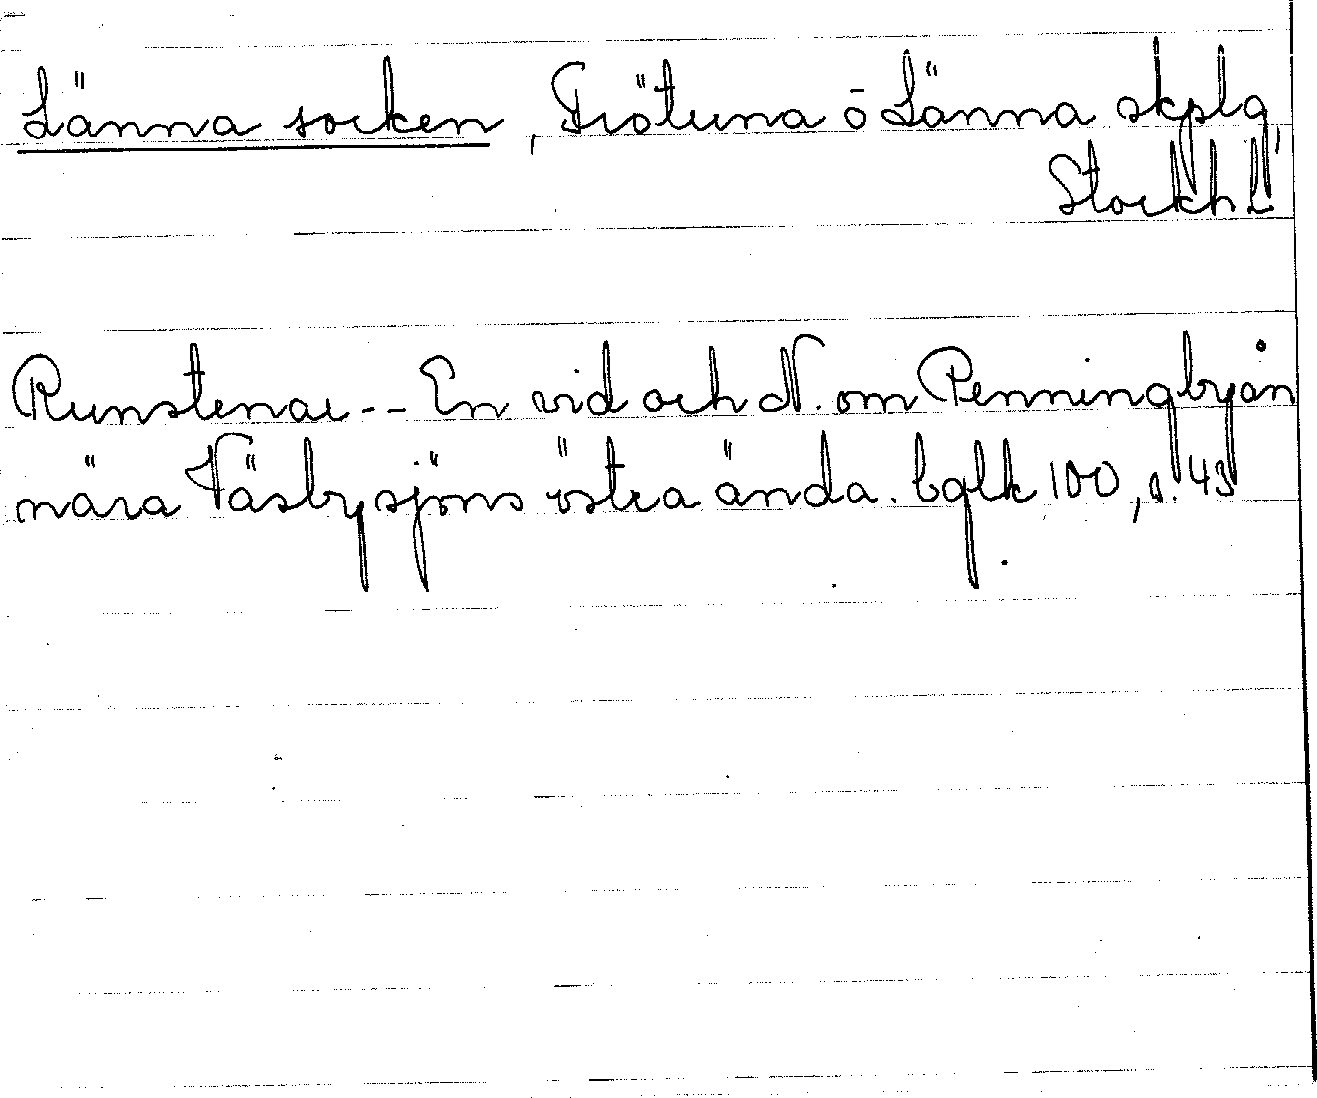 Länna socken, Frötuna o Länna skplg,
Stockh L
Runstenar -- En vid och N. om Penningbyån
nära Väsbysjöns östra ända. bglk 100, s. 43